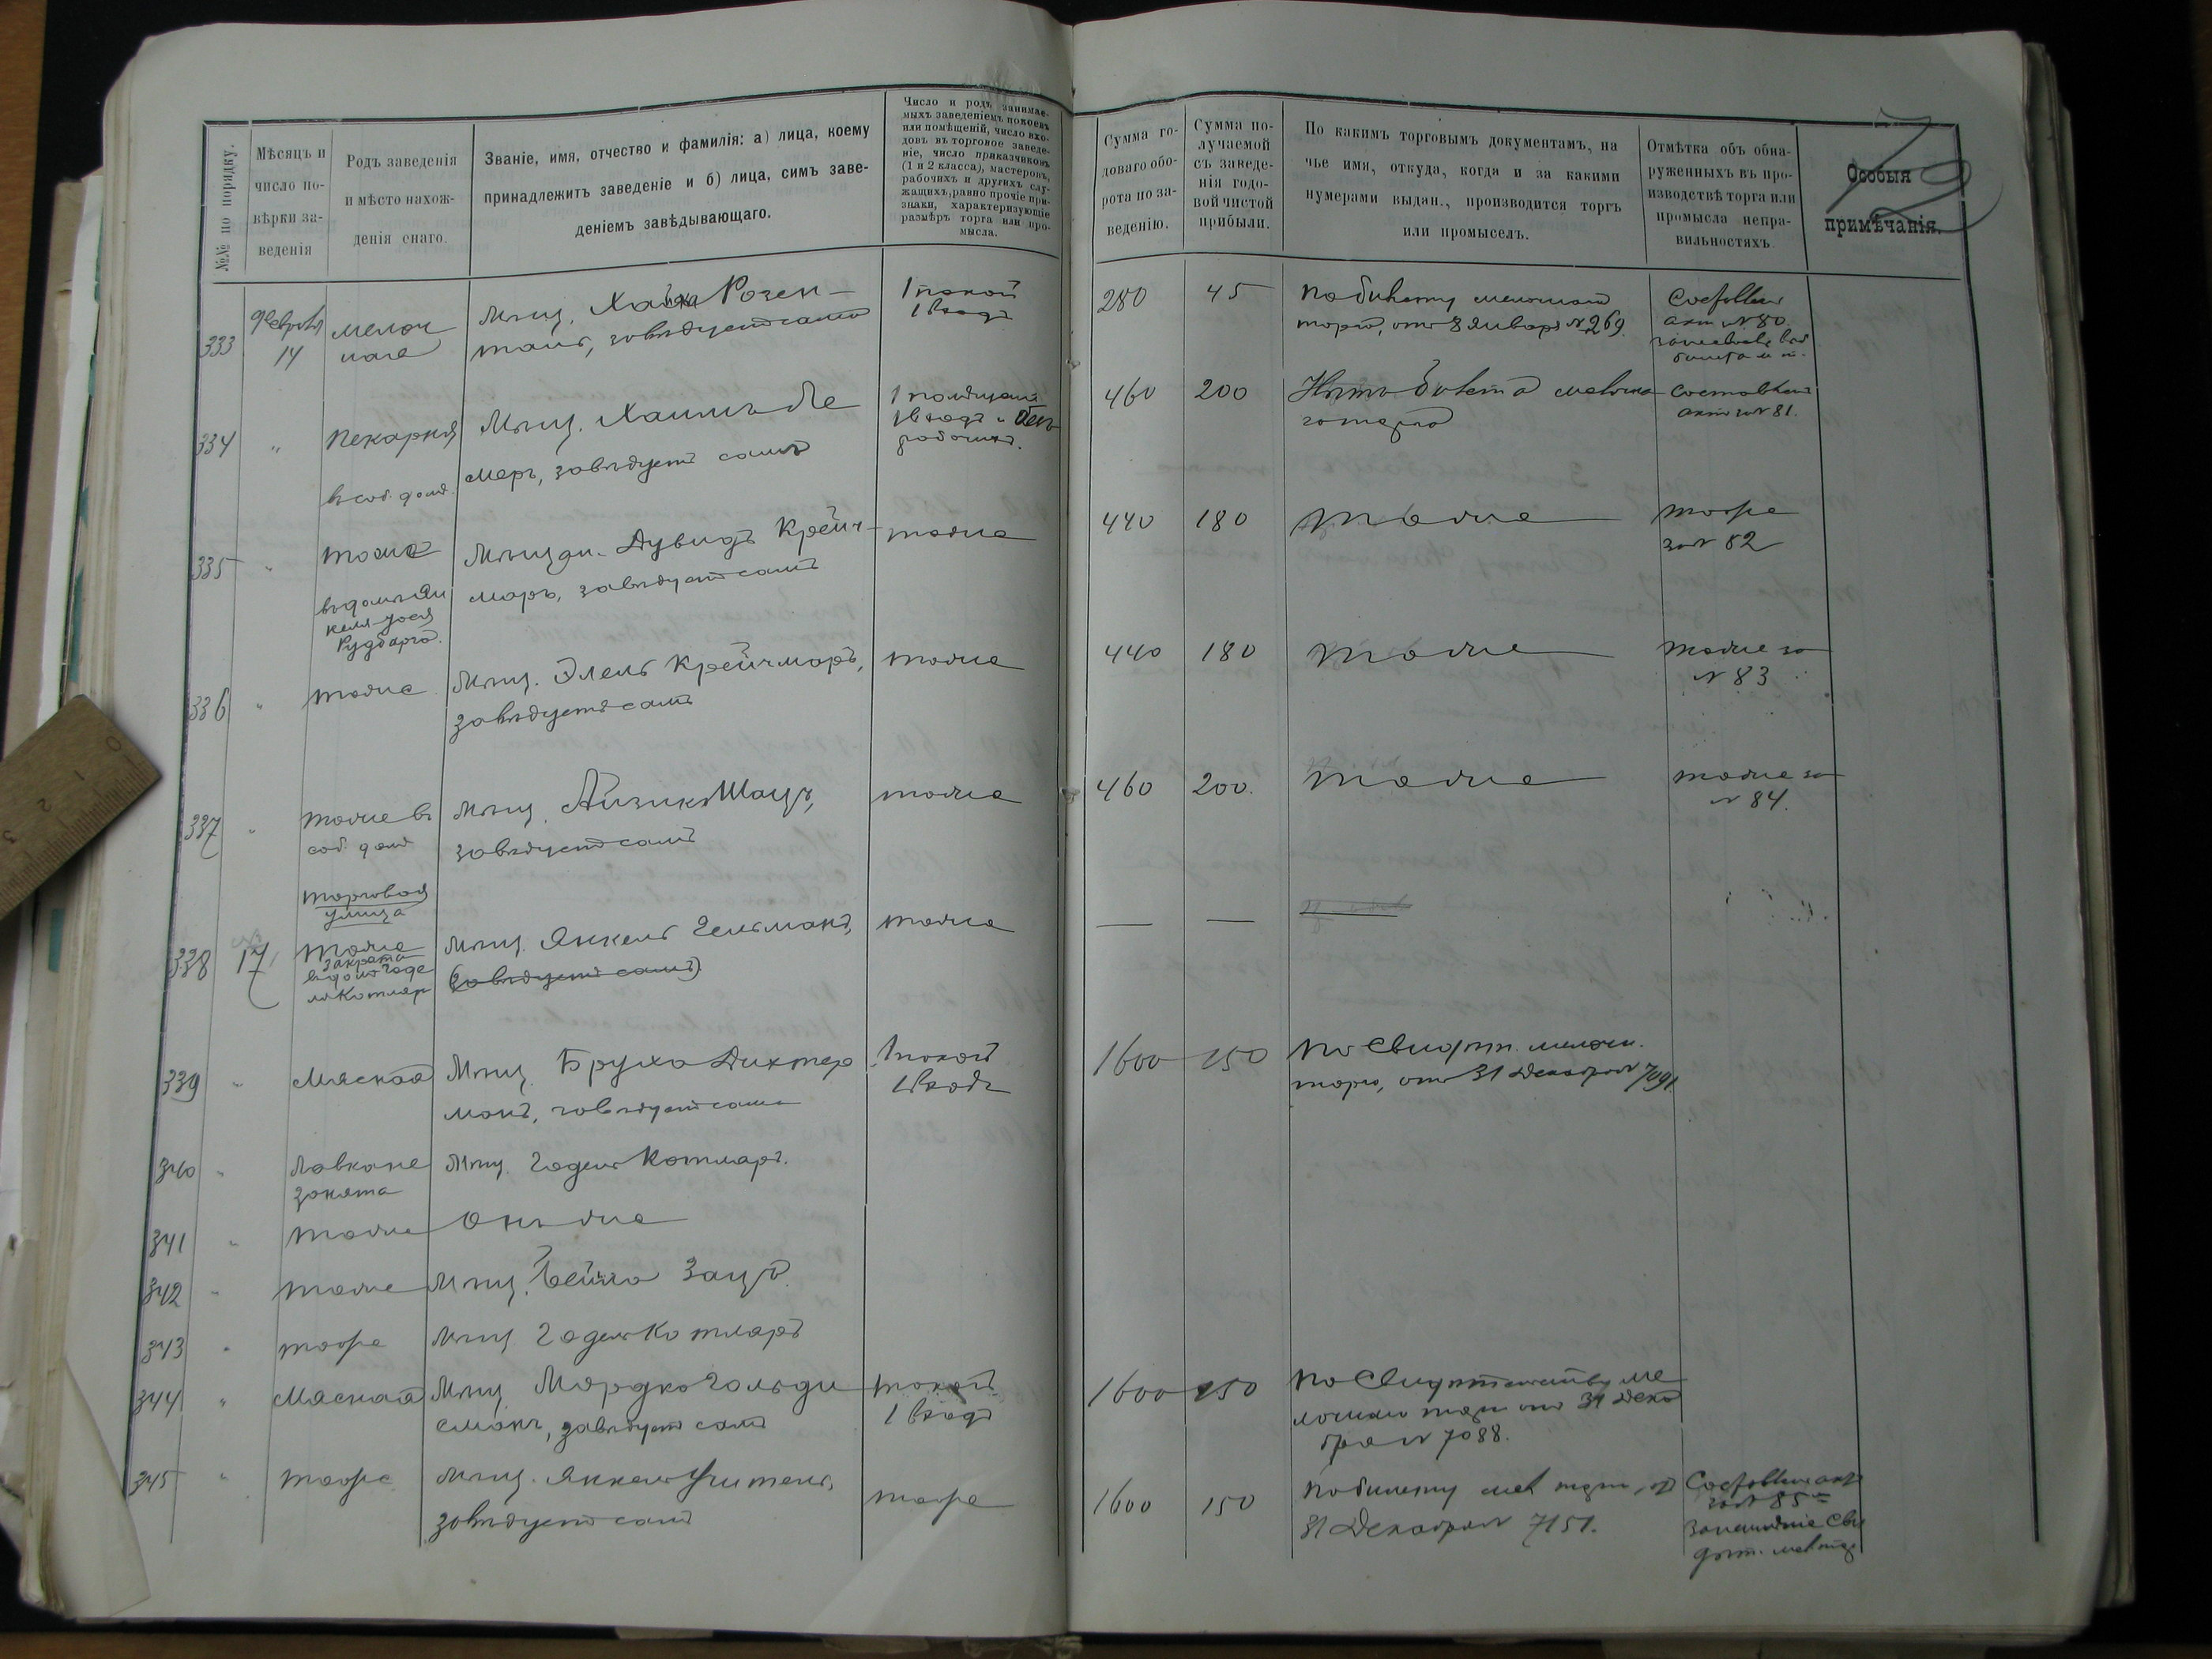 №№ по порядку.
Мѣсяцъ и
число по-
вѣрки за-
веденія
Родъ заведенія
и мѣсто нахож-
денія онаго.
Званіе, имя, отчество и фамилія: а) лица, коему
принадлежитъ заведеніе и б) лица, симъ заве-
деніемъ завѣдывающаго.
Число и родъ занимае-
мыхъ заведеніемъ покоевъ
или помѣщеній, число вхо-
довъ въ торговое заведе-
ніе, число приказчиковъ
(1 и 2 класса), мастеровъ,
рабочихъ и другихъ слу-
жащихъ, равно прочіе при-
знаки, характеризующіе
размѣръ торга или про-
мысла.
Сумма го-
доваго обо-
рота по за-
веденію.
Сумма по-
лучаемой
съ заведе-
нія годо-
вой чистой
прибыли.
По какимъ торговымъ документамъ, на
чье имя, откуда, когда и за какими
нумерами выдан., производится торгъ
или промыселъ.
Отмѣтка объ обна-
руженныхъ въ про-
изводствѣ торга или
промысла непра-
вильностяхъ.
Особыя
примѣчанія.
79
333
Февраля
14
мелоч
ная
Мѣщ. Розен-
завѣдуетъ сама
1 покой
1 входъ
280
45
По билету мелочнаго
торга, отъ 8 Января № 269.
актъ № 80
334
"
Пекарня
въ соб. домѣ.
Мѣщ. Хаимъ Ле
меръ, завѣдуетъ самъ
1 помѣщеніе
1 входъ и безъ
рабочихъ.
460
200
Нѣтъ билета мелочна
го торга
Составленъ
актъ за № 81.
335
"
тоже
въ домѣ Ян
келя
Рудбарга.
Мѣщан. Дувидъ Крейч-
маръ, завѣдуетъ самъ
тоже
440
180
тоже
тоже
за № 82
336
"
тоже
Мѣщ. Элель Крейчмаръ,
завѣдуетъ самъ
тоже
440
180
тоже
тоже за
№ 83
337
"
тоже въ
соб. домѣ
Мѣщ. Айзикъ Шацъ,
завѣдуетъ самъ
тоже
460
200.
тоже
тоже за
№ 84.
Торговая
улица
338
17
тоже
закрыта
въ домѣ Годе
ля Котляр
Мѣщ. Янкель Гельманъ,
(завѣдуетъ самъ)
тоже
—
—
339
"
Мясная
Мѣщ. Бруха Дихтер
манъ, завѣдуетъ сама
1 покой
1 входъ
1600
150
По Свидѣт. мелочн.
торга, отъ 31 Декабря № 7091.
340
"
Лавка не
занята
Мѣщ. Годель Котляръ.
341
"
тоже
Онъ же
342
"
тоже
Мѣщ. Бейла Зацъ.
343
"
тоже
Мѣщ. Годель Котляръ
344
"
Мясная
Мѣщ. Мордко Гольди
сманъ, завѣдуетъ самъ
1 покой
1 входъ
1600
150
По Свидѣтельству ме
лочнаго торга отъ 31 Дека
бря № 7088.
345
"
тоже
Мѣщ. Янкель Учитель,
завѣдуетъ самъ
тоже
1600
150
По билету мел. торга, отъ
31 Декабря № 7151.
Составленъ актъ
за № 85